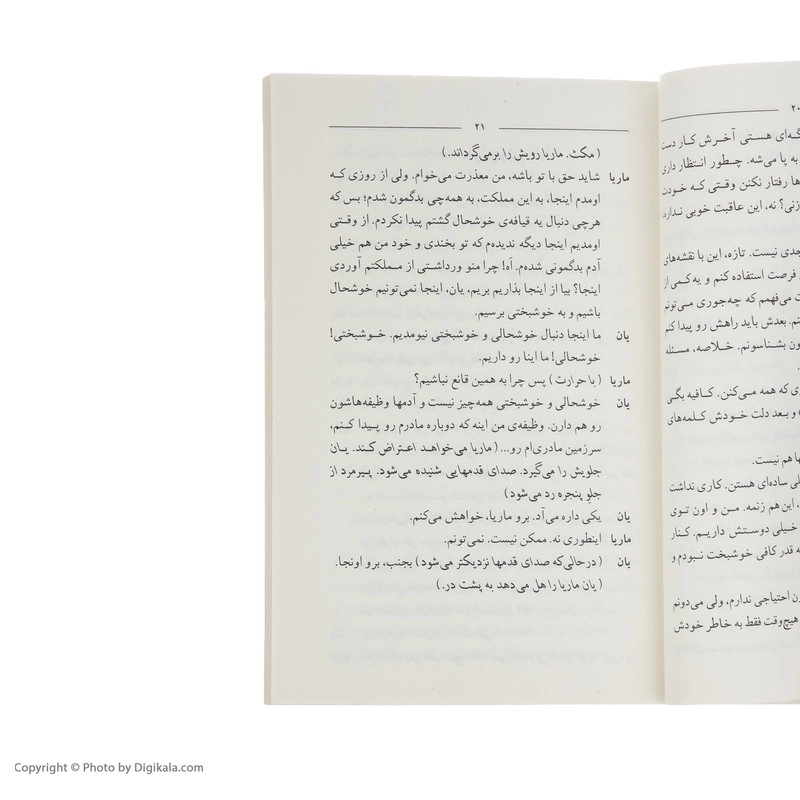 ۲۰
گه‌ای هستی آخرش کار دست
به پا می‌شه. چطور انتظار داری
ها رفتار نکنن وقتی که خودت
زنی؟ نه، این عاقبت خوبی نداره.
جدی نیست. تازه، این با نقشه‌های
فرصت استفاده کنم و یه کمی از
ت می‌فهمم که چه‌جوری می‌تونم
نم. بعدش باید راهش رو پیدا کنم
ون بشناسونم. خلاصه، مسئله
ی که همه می‌کنن. کافیه بگی
و بعد دلت خودش کلمه‌های
ها هم نیست.
لی ساده‌ای هستن. کاری نداشت
، این هم زنمه. من و اون توی
خیلی دوستش داریم. کنار
ه قدر کافی خوشبخت نبودم و
ون احتیاجی ندارم، ولی می‌دونم
هیچ‌وقت فقط به خاطر خودش
۲۱
( مکث. ماریا رویش را برمی‌گرداند.)
ماریا شاید حق با تو باشه، من معذرت می‌خوام. ولی از روزی که
اومدم اینجا، به این مملکت، به همه‌چی بدگمون شدم؛ بس که
هرچی دنبال یه قیافه‌ی خوشحال گشتم پیدا نکردم. از وقتی
اومدیم اینجا دیگه ندیده‌م که تو بخندی و خود من هم خیلی
آدم بدگمونی شده‌م. اَه! چرا منو ورداشتی از مملکتم آوردی
اینجا؟ بیا از اینجا بذاریم بریم، یان، اینجا نمی‌تونیم خوشحال
باشیم و به خوشبختی برسیم.
یان ما اینجا دنبال خوشحالی و خوشبختی نیومدیم. خوشبختی!
خوشحالی! ما اینا رو داریم.
ماریا ( با حرارت ) پس چرا به همین قانع نباشیم؟
یان خوشحالی و خوشبختی همه‌چیز نیست و آدمها وظیفه‌هاشون
رو هم دارن. وظیفه‌ی من اینه که دوباره مادرم رو پیدا کنم،
سرزمین مادری‌ام رو... ( ماریا می‌خواهد اعتراض کند. یان
جلویش را می‌گیرد. صدای قدمهایی شنیده می‌شود. پیرمرد از
جلو پنجره رد می‌شود )
یان یکی داره می‌آد. برو ماریا، خواهش می‌کنم.
ماریا اینطوری نه. ممکن نیست. نمی‌تونم.
یان ( درحالی‌که صدای قدمها نزدیکتر می‌شود ) بجنب، برو اونجا.
( یان ماریا را هل می‌دهد به پشت در.)
Copyright © Photo by Digikala.com